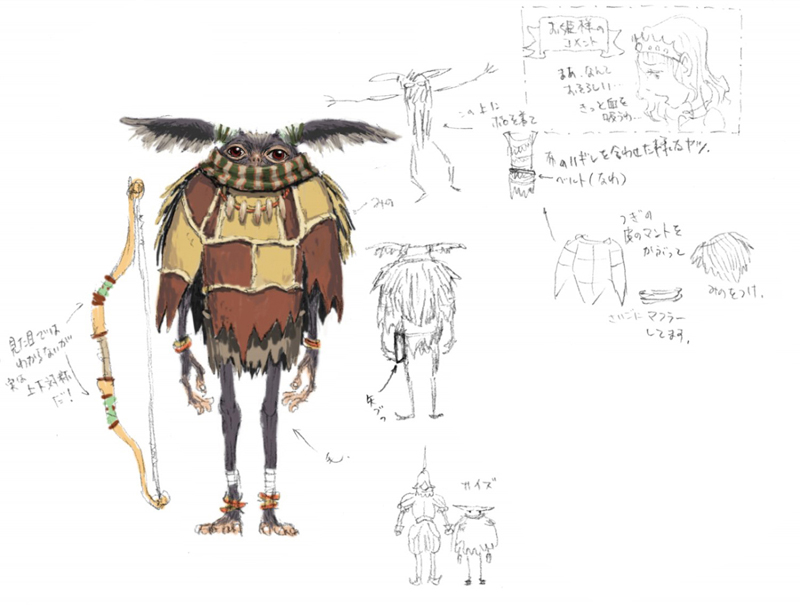 お姫様の
コメント
まあ、なんて
おそろしい…
きっと血を
吸うわ…
この上に
布のハギレを合わせた様なヤツ。
ベルト(なわ)
みの
つぎの
皮のマントを
かぶって
みのをつけ、
さいごにマフラー
してます。
見た目では
わからないが
実は
上下対称
だ!
サイズ